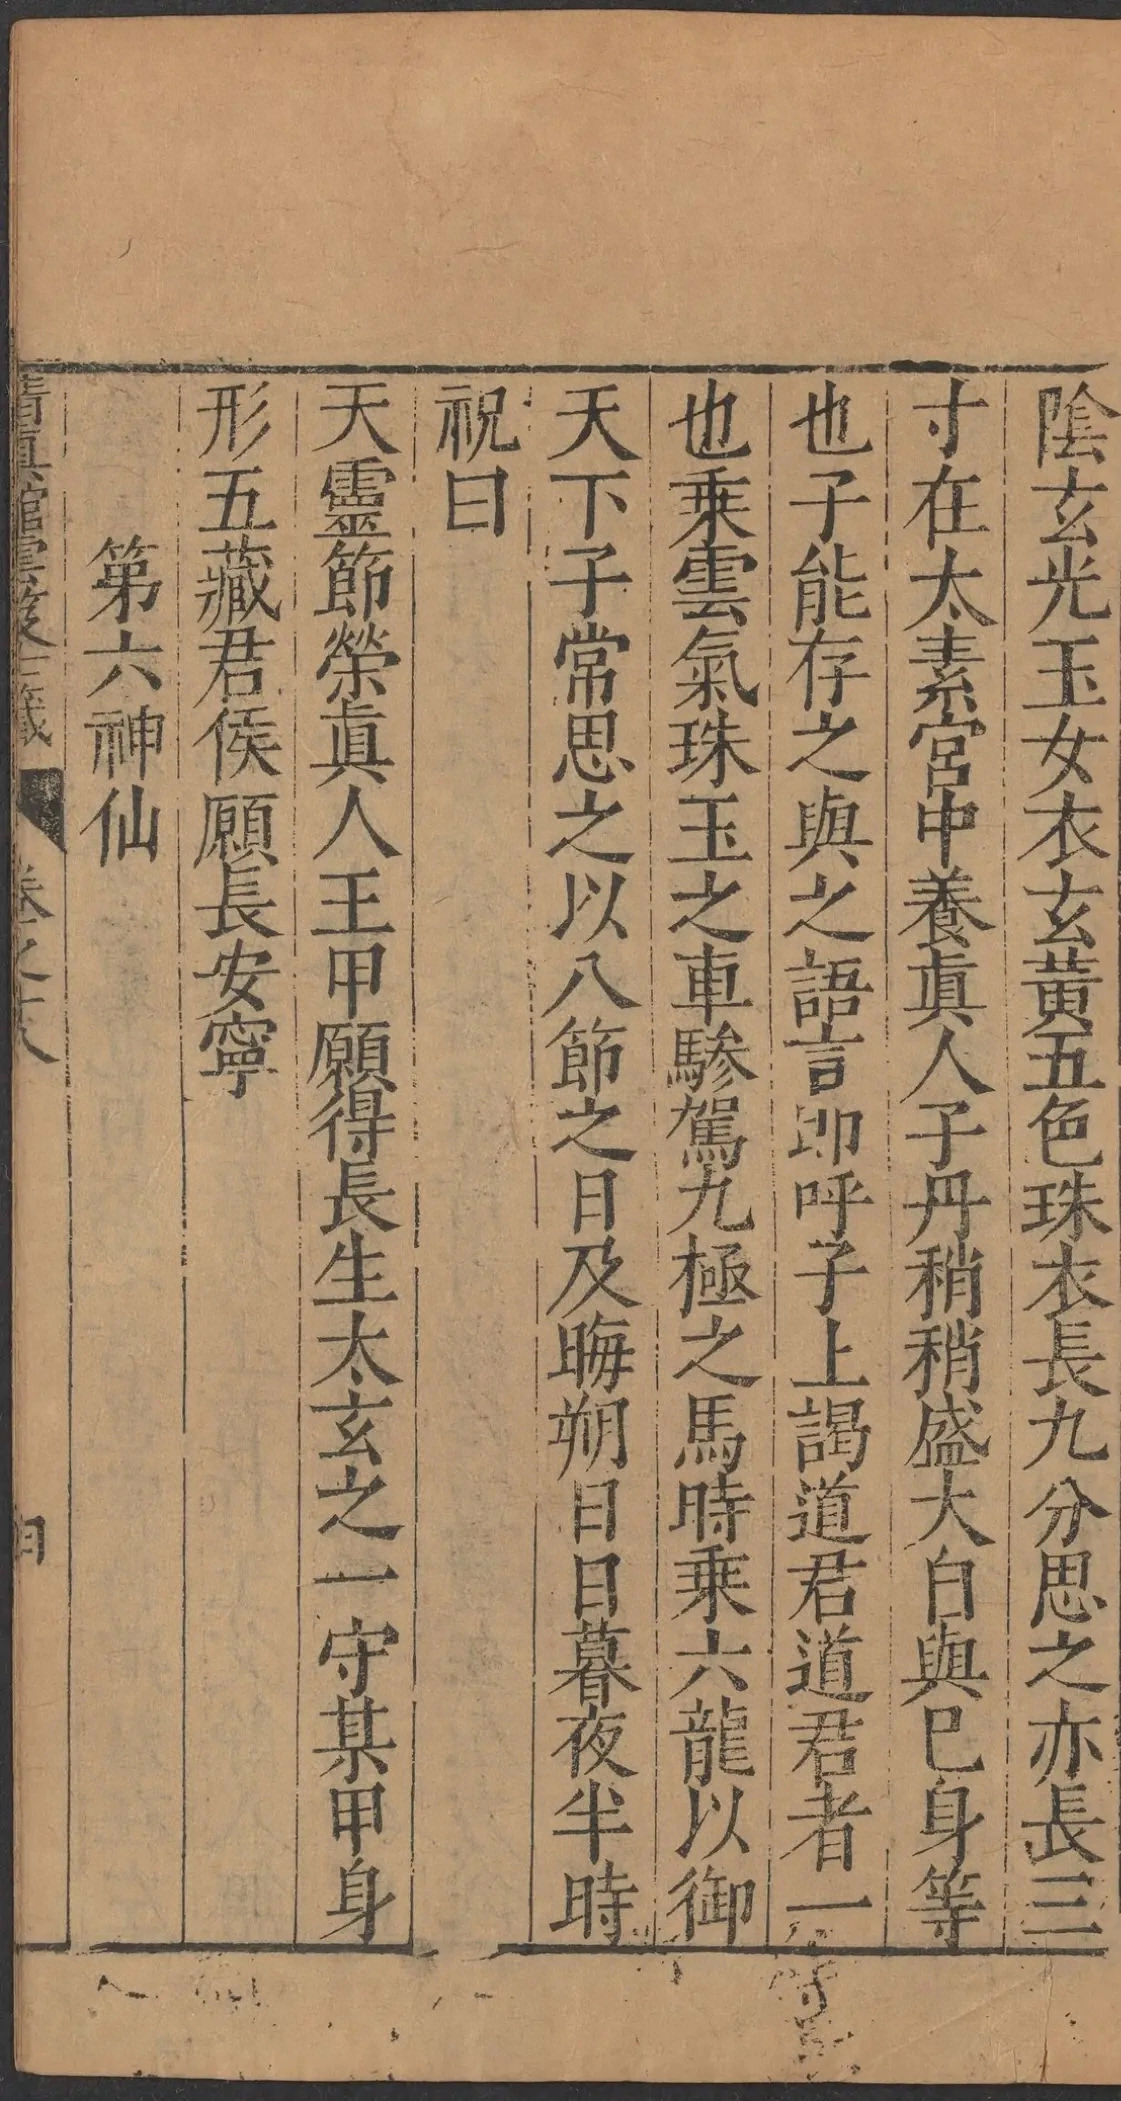 陰玄光玉女衣玄黃五色珠衣長九分思之亦長三
寸在太素宮中養眞人子丹稍稍盛大自與巳身等
也子能存之與之語言即呼子上謁道君道君者一
也乘雲氣珠玉之車驂駕九極之馬時乘六龍以御
天下子常思之以八節之日及晦朔日日暮夜半時
祝曰
天靈節榮眞人王甲願得長生太玄之一守某甲身
形五藏君侯願長安寧
第六神仙
清眞館雲笈七籤
卷之十八
四